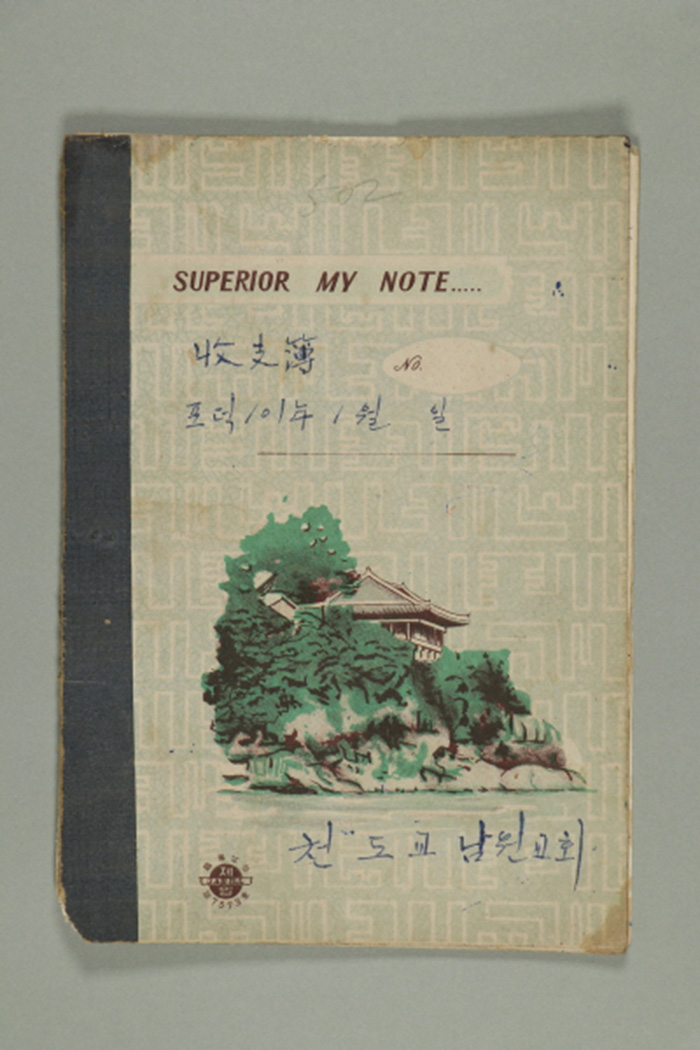 502
SUPERIOR MY NOTE.....
收支簿
No.
포덕 101年 1월 일
천도교 남원교회